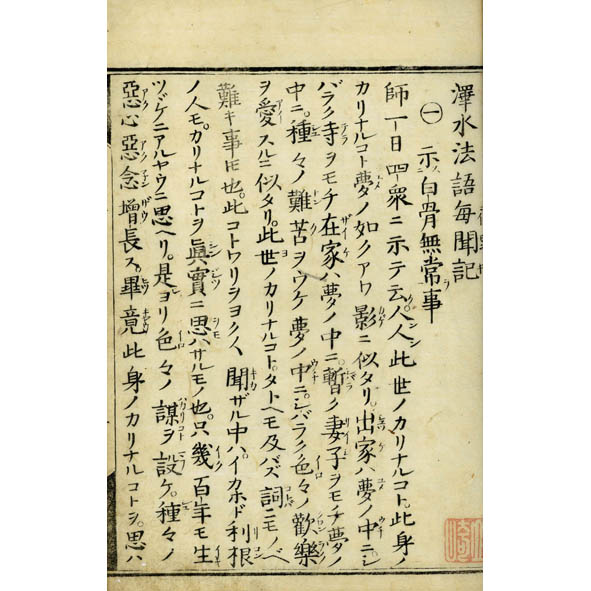 澤水法語毎聞記
㊀ 示ス白骨無常事ヲ
師一日四衆ニ示テ云人人此世ノカリナルコト此身ノ
カリナルコト夢ノ如クアワ影ニ似タリ。出家ハ夢ノ中ニシ
バラク寺ヲモチ在家ハ夢ノ中ニ。暫ク妻子ヲモチ夢ノ
中ニ。種々ノ難苦ヲウケ夢ノ中ニ。シバラク色々ノ歡樂
ヲ愛スルニ似タリ。此世ノカリナルコト。タトヘモ及バズ詞ニモノベ
難キ事ドモ也。此コトワリヲヨク〳〵聞ザル中ハ。イカホド利根
ノ人モ。カリナルコトヲ眞實ニ思ハサルモノ也。只幾百年モ生
ツヾケニアルヤウニ思ヘリ。是ヨリ色々ノ謀ヲ設ケ。種々ノ
惡心惡念增長ス。畢竟此身ノカリナルコトヲ。思ハ